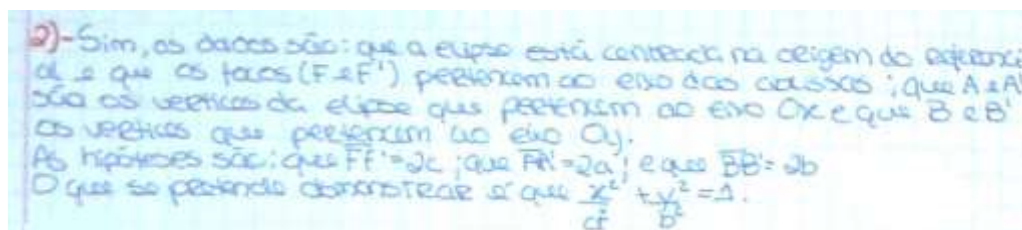 2)-Sim, os dados são: que a elipse está centrada na origem do referenci
al e que os focos (F e F') pertencem ao eixo das abcissas; que A e A'
são os vertices da elipse que pertencem ao eixo Ox e que B e B'
os vertices que pertencem ao eixo Oy.
As hipóteses são: que FF'=2c; que AA'=2a; e que BB'=2b
O que se pretende demonstrar é que x²/a² + y²/b² = 1.